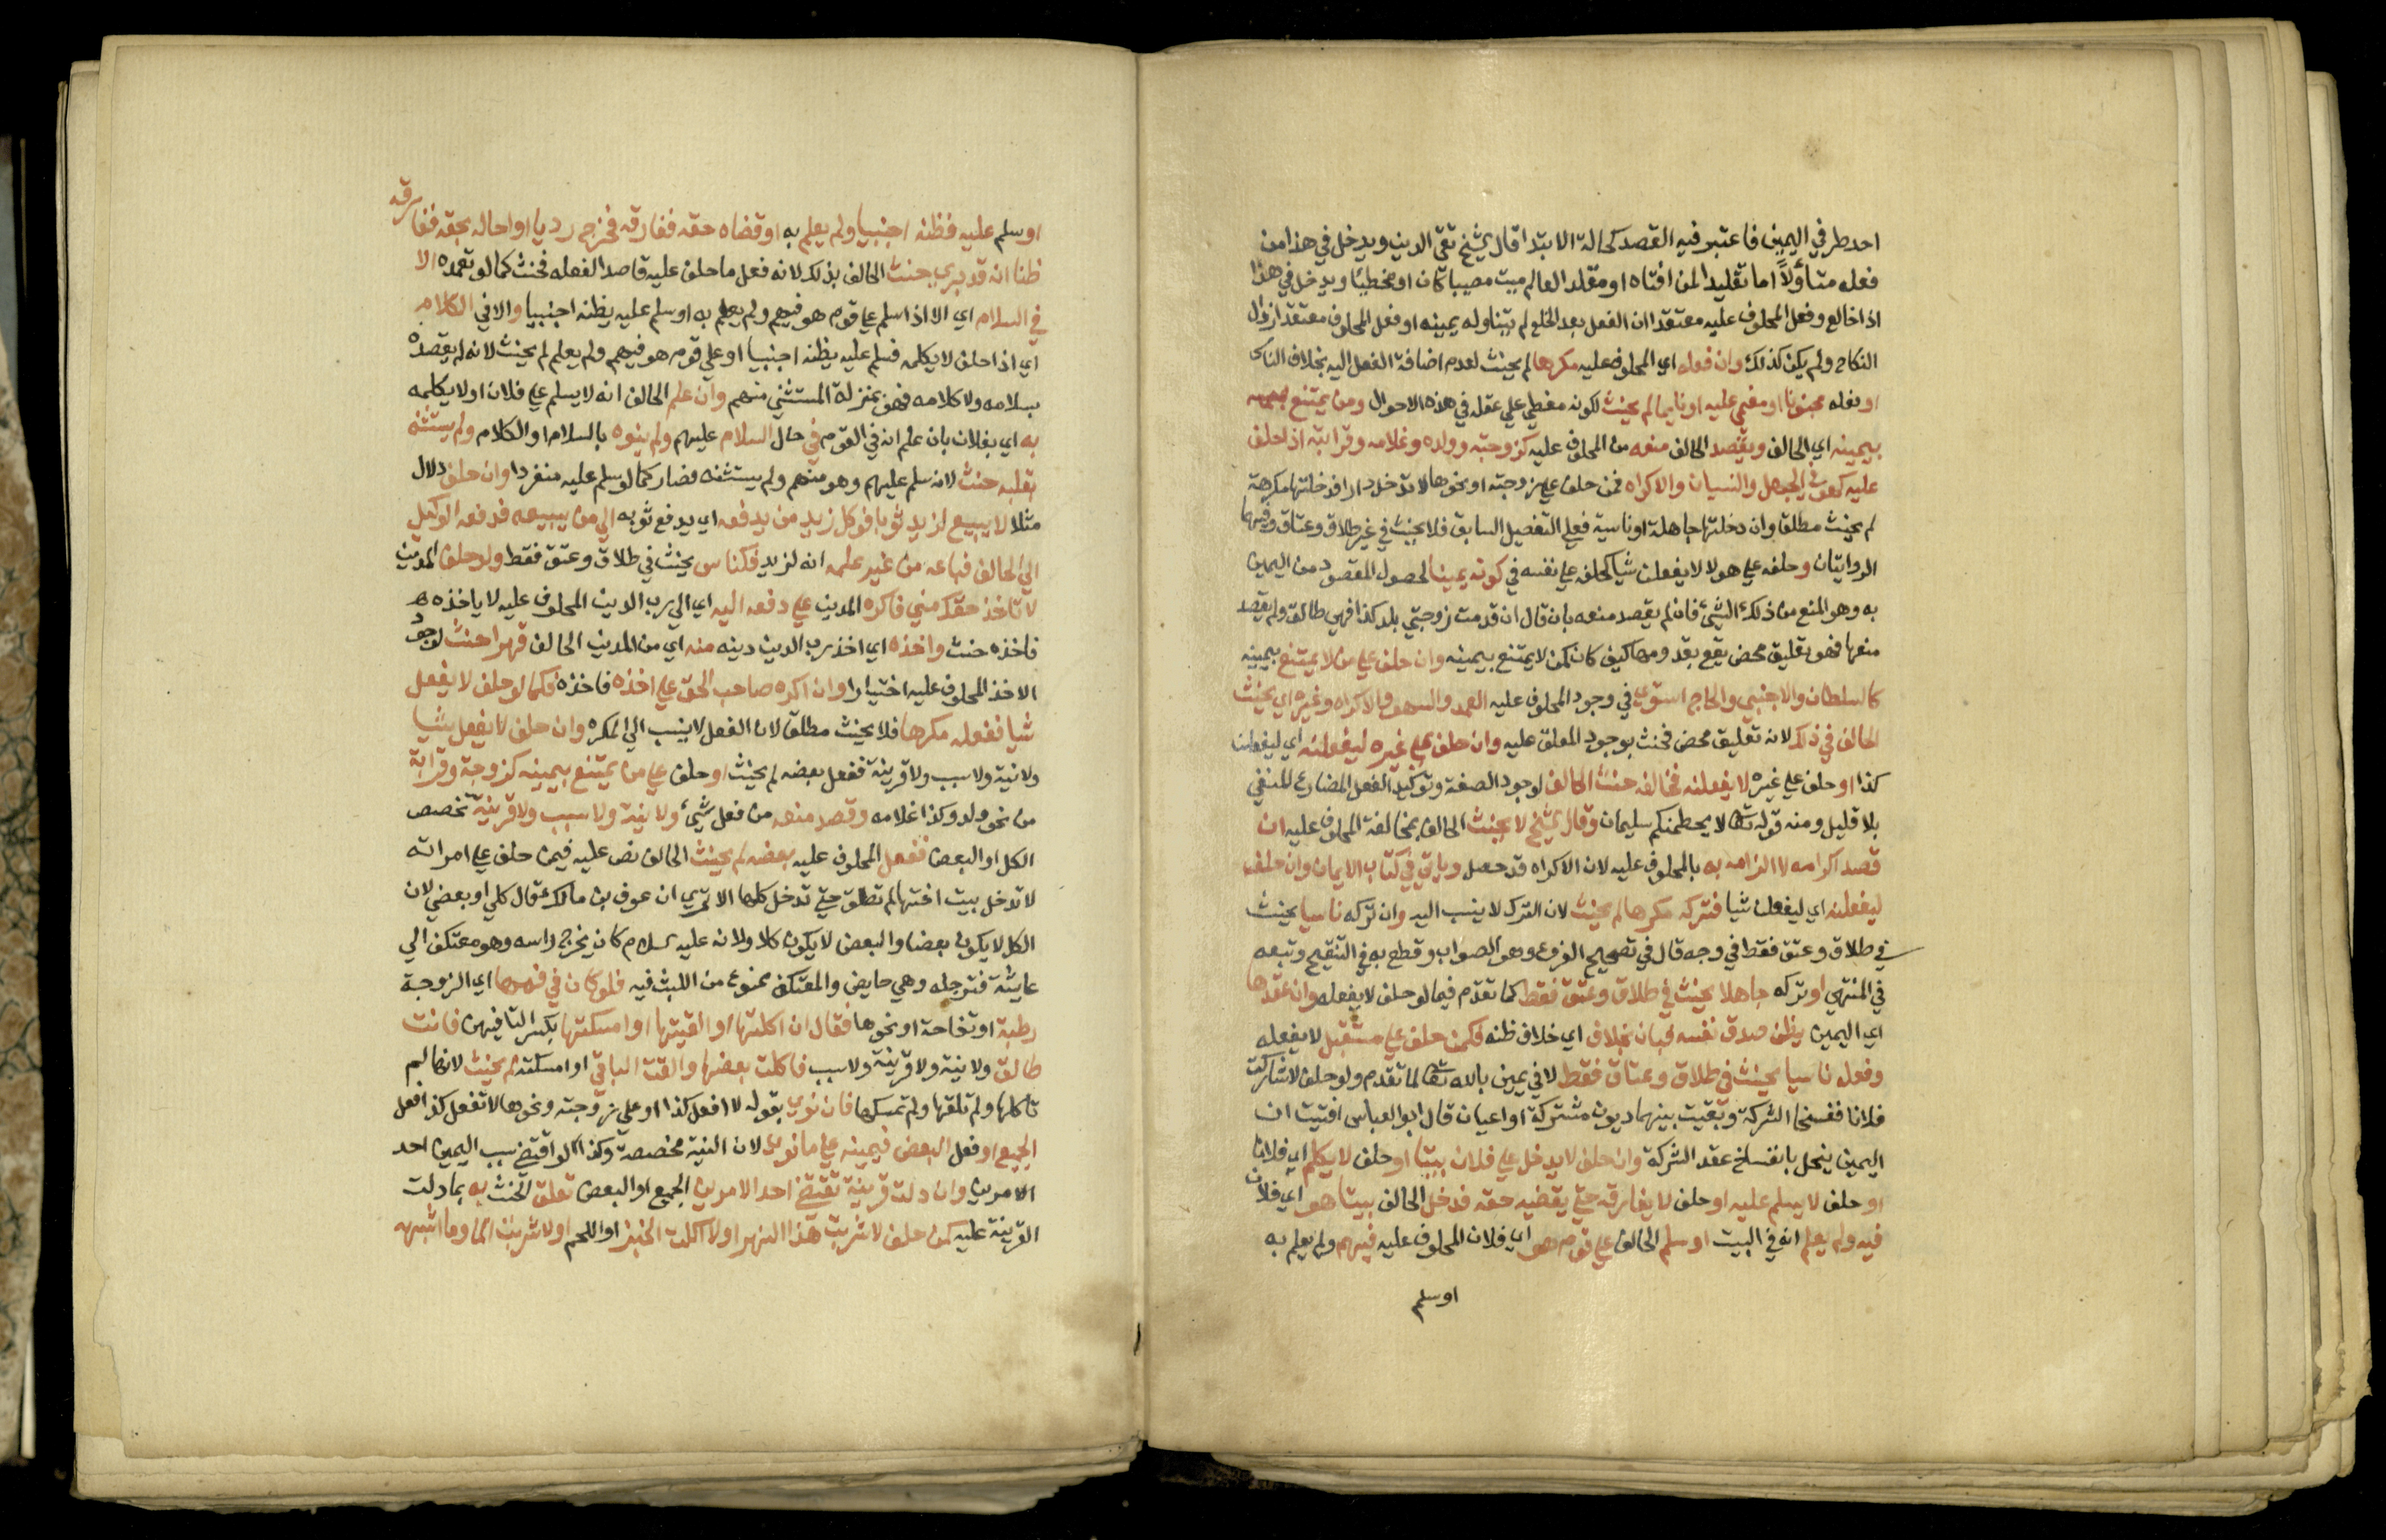 احد طرفي اليمين فاعتبر فيه القصد كحالة الابتدا قال الشيخ تقي الدين ويدخل في هذا من
فعله متأولاً اما تقليدا لمن افتاه او مقلد العالم ميت مصيبا كان او مخطيًا ويدخل في هذا
اذا خالع وفعل المحلوف عليه معتقدا ان الفعل بعد الخلع لم يتناوله يمينه او فعل المحلوف معتقدا زوال
النكاح ولم يكن كذلك وان فعله اي المحلوف عليه مكرها لم يحنث لعدم اضافة الفعل اليه بخلاف الناسي
او فعله مجنونا او مغمي عليه او نايما لم يحنث لكونه مغطي علي عقله في هذه الاحوال ومن يمتنع
بيمينه اي الحالف ويقصد الحالف منعه من المحلوف عليه كزوجته وولده وغلامه وقرابته اذا حلف
عليه كهو في الجهل والنسيان والاكراه فمن حلف علي زوجته او نحوها لا تدخل دارا فدخلتها مكرهة
لم يحنث مطلقا وان دخلتها جاهلة او ناسية فعلي التفصيل السابق فلا يحنث في غير طلاق وعتاق وفيهما
الروايتان وحلفه علي هولا لا يفعلن شيا كحلفه علي نفسه في كونه يمينا لحصول المقصود من اليمين
به وهو المنع من ذلك الشيء فان لم يقصد منعه بان قال ان قدمت زوجتي بلد كذا فهي طالق ولم يقصد
منعها فهو تعليق محض يقع بقدومها كيف كان كمن لا يمتنع بيمينه وان حلف علي من لا يمتنع بيمينه
كالسلطان والاجنبي والحاج استوي في وجود المحلوف عليه العمد والسهو والاكراه وغيره اي يحنث
الحالف في ذلك لانه تعليق محض فحنث بوجود المعلق عليه وان حلف علي غيره ليفعلنه اي ليفعلن
كذا او حلف علي غيره لا يفعلنه فخالفه حنث الحالف لوجود الصفة وتوكيد الفعل المضارع المنفي
بلا قليل ومنه قوله تعالى لا يحطمنكم سليمان وقال الشيخ لا يحنث الحالف بمخالفة المحلوف عليه ان
قصد اكرامه لا الزامه به بالمحلوف عليه لان الاكراه قد حصل وياتي في كتاب الايمان وان حلف
ليفعلنه اي ليفعلن شيا فتركه مكرها لم يحنث لان الترك لا ينسب اليه وان تركه ناسيا يحنث
في طلاق وعتق فقط في وجه قال في تصحيح الفروع وهو الصواب وقطع به في التنقيح وتبعه
في المنتهي او تركه جاهلا يحنث في طلاق وعتق فقط كما تقدم فيما لو حلف لا يفعله وان عقدها
اي اليمين يظن صدق نفسه فبان بخلاف اي خلاف ظنه فكمن حلف علي مستقبل لا يفعله
وفعله ناسيا يحنث في طلاق وعتاق فقط لا في يمين بالله تعالى لما تقدم ولو حلف لا شاركت
فلانا ففسخا الشركة وبقيت بينهما ديون مشتركة او اعيان قال ابو العباس افتيت ان
اليمين ينحل بانفساخ عقد الشركة وان حلف لا يدخل علي فلان بيتا او حلف لا يكلم اي فلانا
او حلف لا يسلم عليه او حلف لا يفارقه حتي يقضيه حقه فدخل الحالف بيتا هو اي فلان
فيه ولم يعلم انه في البيت او سلم الحالف علي قوم هو اي فلان المحلوف عليه فيهم ولم يعلم به
او سلم
او سلم عليه فظنه اجنبيا ولم يعلم به او قضاه حقه ففارقه فخرج رديا او احاله بحقه ففارقه
ظنا انه قد بري حنث الحالف بذلك لانه فعل ما حلف عليه قاصدا لفعله فحنث كما لو تعمده الا
في السلام اي الا اذا سلم علي قوم هو فيهم ولم يعلم به او سلم عليه يظنه اجنبيا والا في الكلام
اي اذا حلف لا يكلمه فسلم عليه يظنه اجنبيا او علي قوم هو فيهم ولم يعلم لم يحنث لانه لم يقصده
بسلامه ولا كلامه فهو بمنزلة المستثني منهم وان علم الحالف انه لا يسلم علي فلان او لا يكلمه
به اي بفلان بان علم انه في القوم في حال السلام عليهم ولم ينوه بالسلام او الكلام ولم يستثنه
بقلبه حنث لانه سلم عليهم وهو منهم ولم يستثنه فصار كما لو سلم عليه منفردا وان حلف دلال
مثلا لا يبيع لزيد ثوبا فوكل زيد من يدفعه اي يدفع ثوبه الي من يبيعه فدفعه الوكيل
الي الحالف فباعه من غير علمه انه لزيد فكناس يحنث في طلاق وعتق فقط ولو حلف المدين
لا تاخذ حقك مني فاكره المدين علي دفعه اليه اي الي رب الدين المحلوف عليه لا ياخذه
فاخذه حنث واخذه اي اخذ رب الدين دينه منه اي من المدين الحالف قهرا حنث لوجود
الاخذ المحلوف عليه اختيارا وان اكره صاحب الحق علي اخذه فاخذه فكما لو حلف لا يفعل
شيا ففعله مكرها فلا يحنث مطلقا لان الفعل لا ينسب الي المكره وان حلف لا يفعل شيا
ولا نية ولا سبب ولا قرينة ففعل بعضه لم يحنث او حلف علي من يمتنع بيمينه كزوجة وقرابة
من نحو ولد وكذا غلامه وقصد منعه من فعل شيء ولا نية ولا سبب ولا قرينة تخصص
الكل او البعض ففعل المحلوف عليه بعضه لم يحنث الحالف نص عليه فيمن حلف علي امراته
لا تدخل بيت اختها لم تطلق حتي تدخل كلها الا تري ان عوف بن مالك قال كلي او بعضي لان
الكل لا يكون بعضا والبعض لا يكون كلا ولانه عليه السلام كان يخرج راسه وهو معتكف الي
عايشة فترجله وهي حايض والمعتكف ممنوع من اللبث فيه فلو كان في فمها اي الزوجة
رطبة او تفاحة او نحوها فقال ان اكلتها او القيتها او امسكتها بكسر التا فيهن فانت
طالق ولا نية ولا قرينة ولا سبب فاكلت بعضها والقت الباقي او امسكته لم يحنث لانها لم
تاكلها ولم تلقها ولم تمسكها فان نوي بقوله لا افعل كذا او علي زوجته ونحوها لا تفعل كذا فعل
الجميع او فعل البعض فيمينه علي ما نوي لان النية مخصصة وكذا لو اقتضي سبب اليمين احد
الامرين وان دلت قرينة تقتضي احد الامرين الجميع او البعض تعلق الحنث به بما دلت
القرينة عليه كمن حلف لا شربت هذا النهر او لا اكلت الخبز او اللحم او لا شربت الما وما اشبهه